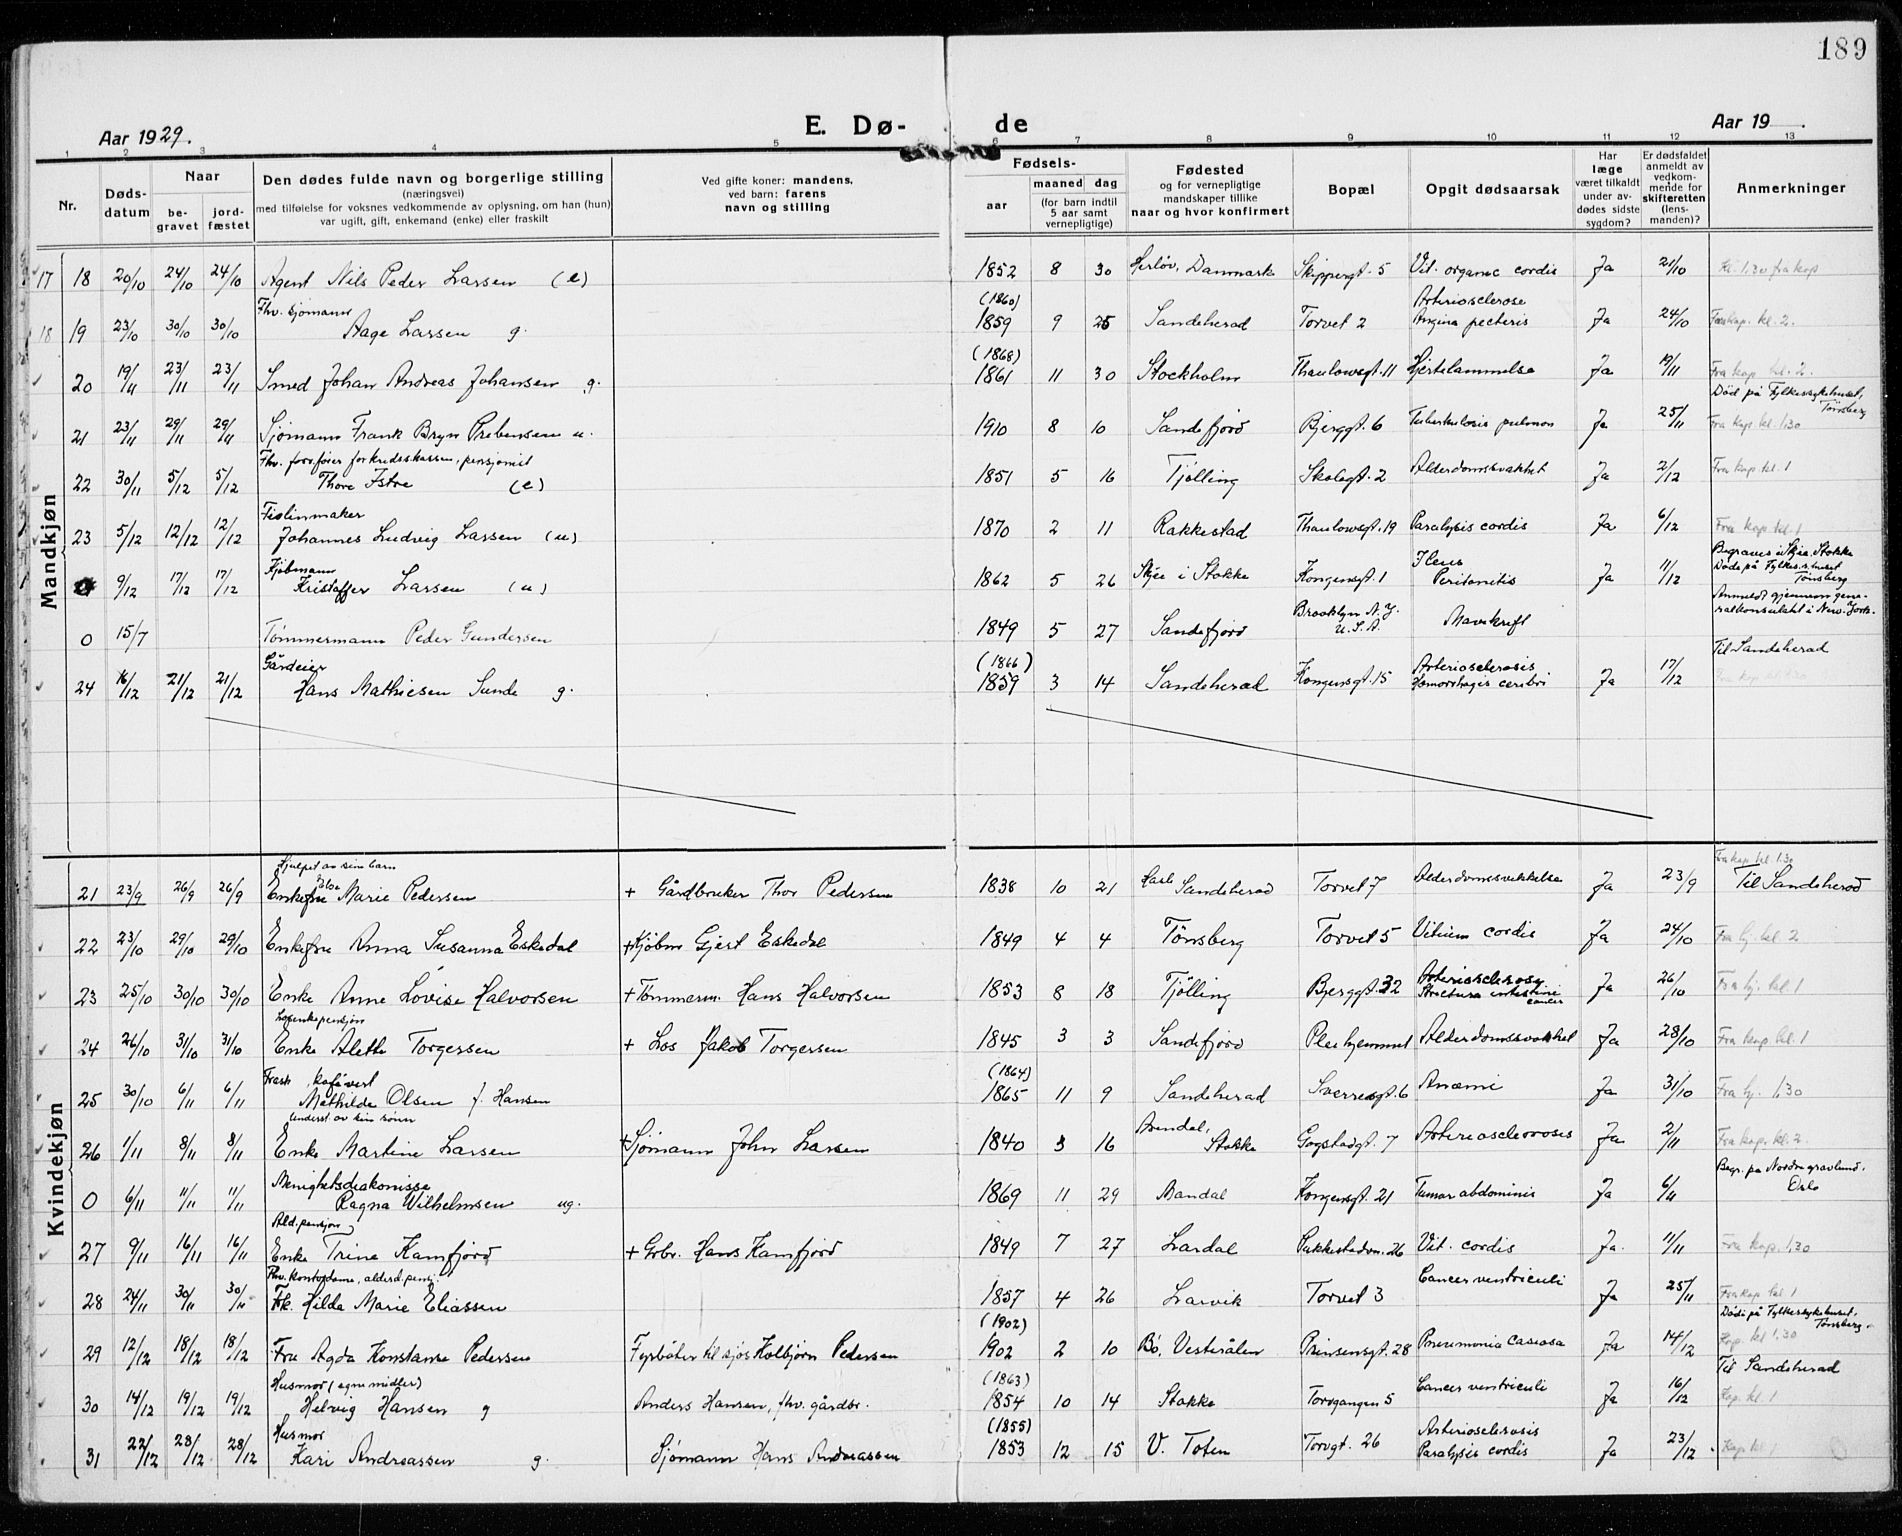 189
Aar 1929. E. Dø- de Aar 19
1 2 3 4 5 6 7 8 9 10 11 12 13
Nr. Døds-datum Naar be-gravet jord-fæstet Den dødes fulde navn og borgerlige stilling (næringsvei) med tilføielse for voksnes vedkommende av oplysning, om han (hun) var ugift, gift, enkemand (enke) eller fraskilt Ved gifte koner: mandens, ved barn: farens navn og stilling Fødsels- aar maaned dag (for barn indtil 5 aar samt vernepligtige) Fødested og for vernepligtige mandskaper tillike naar og hvor konfirmert Bopæl Opgit dødsaarsak Har læge været tilkaldt under av-dødes sidste sygdom? Er dødsfaldet anmeldt av vedkom-mende for skifteretten (lens-manden)? Anmerkninger
Mandkjøn
17 18 20/10 24/10 24/10 Agent Nils Peder Larsen (e) 1852 8 30 Herløv, Danmark Skippergt. 5 Vit. organic cordis Ja 21/10 kl. 1.30 fra kap
18 19 23/10 30/10 30/10 Fhv. sjømann Aage Larsen g. (1860) 1859 9 25 Sandeherad Torvet 2 Arteriosclerose Angina pectoris Ja 24/10 Fra kap. kl. 2.
20 19/11 23/11 23/11 Smed Johan Andreas Johansen g. (1868) 1861 11 30 Stockholm Thaulowsgt. 11 Hjertelammelse Ja 19/11 Fra kap. kl. 2.
21 23/11 29/11 29/11 Sjømann Frank Bryn Prebensen u. 1910 8 10 Sandefjord Bjerggt. 6 Tuberkulosis pulmon Ja 25/11 Død på Fylkessykehuset, Tønsberg Fra Kap. kl. 1.30
22 30/11 5/12 5/12 Fhv. forr.fører for kredskassen, pensjonist Thore Istre (e) 1851 5 16 Tjølling Skolegt. 2 Alderdomssvakhet Ja 2/12 Fra kap kl. 1
23 5/12 12/12 12/12 Fiolinmaker Johannes Ludvig Larsen (u) 1870 2 11 Rakkestad Thaulowsgt. 19 Paralysis cordis Ja 6/12 Fra kap kl. 1
0 9/12 17/12 17/12 Kjøbmann Kristoffer Larsen (u) 1862 5 26 Skjee i Stokke Kongensgt. 1 Ileus Peritonitis Ja 11/12 Begraves i Skjee, Stokke Døde på Fylkes.s.huset Tønsberg
0 15/7 Tømmermann Peder Gundersen 1849 5 27 Sandefjord Brooklyn N.Y. U.S.A. Mavekreft Anmeldt gjennem gene-ralkonsulatet i New-York.
24 16/12 21/12 21/12 Gårdeier Hans Mathiesen Sunde g. (1866) 1859 3 14 Sandeherad Kongensgt. 15 Arteriosclerosis Hæmorrhagia cerebri Ja 17/12 Til Sandeherad
Kvindekjøn
21 23/9 26/9 26/9 Hjulpet av sine barn Enkefru Marie Pedersen + Gårdbruker Thor Pedersen 1838 10 21 Sandeherad Torvet 7 Alderdomssvekkelse Ja 23/9 Fra kap. kl. 1.30 Til Sandeherad
22 23/10 29/10 29/10 Enkefru Anna Susanna Eskedal + Kjøbm Gjest Eskedal 1849 4 4 Tønsberg Torvet 5 Vitium cordis Ja 24/10 Fra hj. kl. 2
23 25/10 30/10 30/10 Enke Anne Lovise Halvorsen + Tømmerm. Hans Halvorsen 1853 8 18 Tjølling Bjerggt. 32 Arteriosclerose. Strictura intestini cancer Ja 26/10 Fra hj. kl. 1
24 26/10 31/10 31/10 Losenkepensjon Enke Alette Torgersen + Los Jakob Torgersen 1845 3 3 Sandefjord Pleiehjemmet Alderdomssvakhet Ja 28/10 Fra kap. kl. 1
25 30/10 6/11 6/11 Frask. kafévert Mathilde Olsen f. Hansen (1864) 1865 11 9 Sandeherad Sverresgt. 6 Anæmi Ja 31/10 Fra hj. 1.30
26 1/11 8/11 8/11 Underst. av sin sønn Enke Martine Larsen + Sjømann John Larsen 1840 3 16 Arendal, Stokke Gogstadgt. 7 Arteriosclerosis Ja 2/11 Fra kap. kl. 2.
0 6/11 11/11 11/11 Menighetsdiakonisse Ragna Wilhelmsen ug. 1869 11 29 Mandal Kongensgt. 21 Tumor abdominis Ja 6/11 Begr. på Nordre gravlund. Oslo
27 9/11 16/11 16/11 Ald.pensjon Enke Trine Kamfjord + Grbr. Hans Kamfjord 1849 7 27 Lardal Pukkestadvn. 26 Vit. cordis Ja. 11/11 Fra kap. 1.30
28 24/11 30/11 30/11 Fhv. kontordame, alderd.pensj. Frk. Hilda Marie Eliassen 1857 4 26 Larvik Torvet 3 Cancer ventriculi Ja 25/11 Fra kap kl. 1
29 12/12 18/12 18/12 Fru Agda Konstanse Pedersen Fyrbøter til sjøs Kolbjørn Pedersen (1902) 1902 2 10 Bø, Vesterålen Prinsensgt. 28 Pneumonia caseosa Ja 14/12 Døde på Fylkessykehuset. Tønsberg. Kap. kl 1.30
30 14/12 19/12 19/12 Husmor (egne midler) Helvig Hansen g Anders Hansen, fhv. gårdbr. (1863) 1854 10 14 Stokke Torvgangen 5 Cancer ventriculi Ja 16/12 Til Sandeherad Kap. kl. 1
31 22/12 28/12 28/12 Husmor Kari Andreassen g. Sjømann Hans Andreassen (1855) 1853 12 15 V. Toten Torvgt. 26 Arteriosclerosis Paralysis cordis Ja 23/12 Kap kl 1